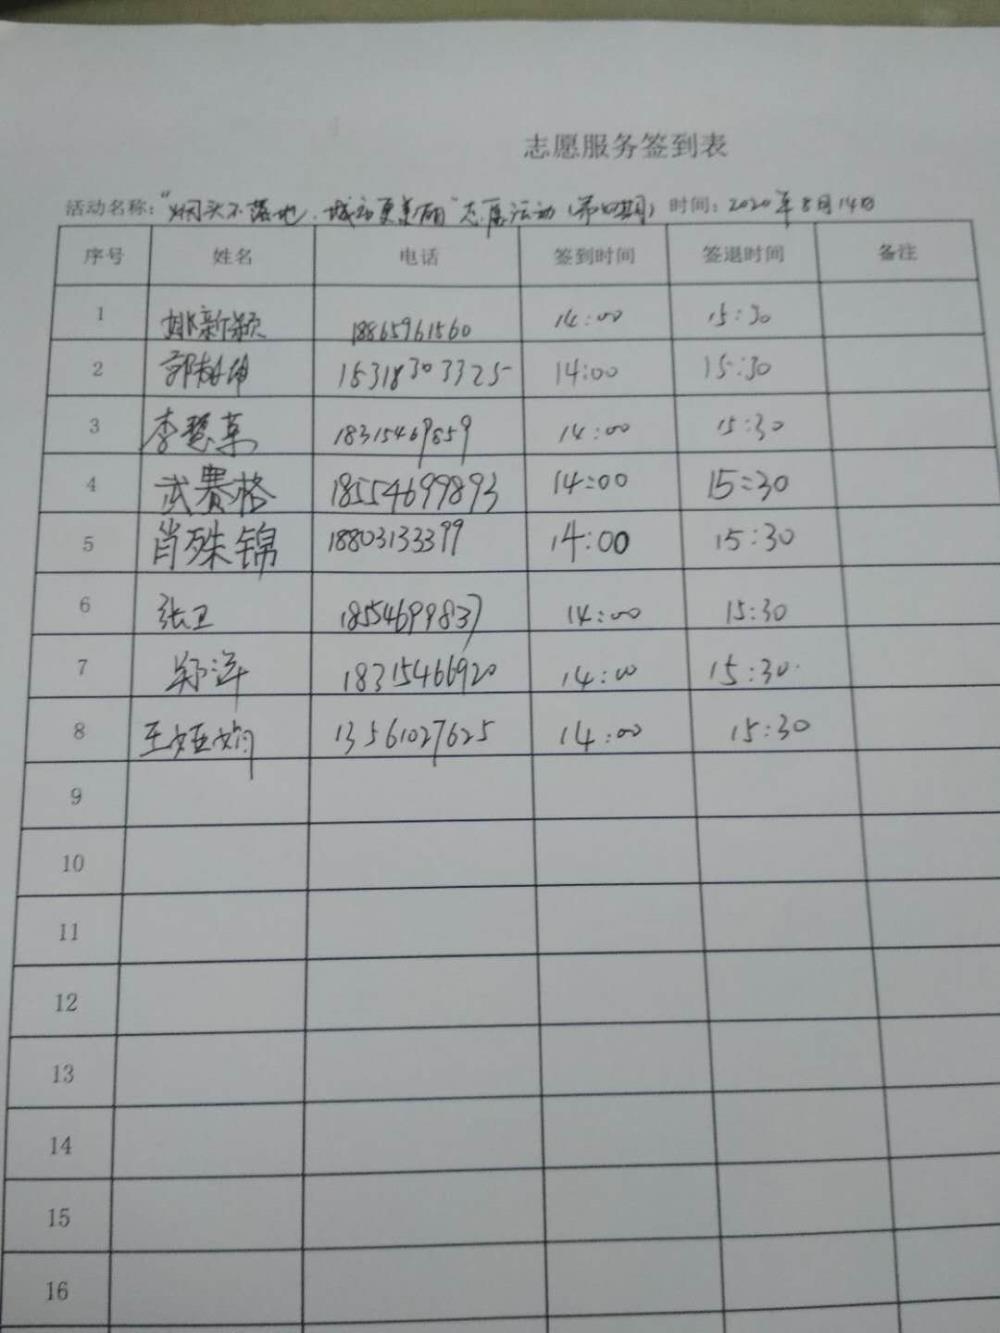 志愿服务签到表
活动名称："烟头不落地，城市更美丽"志愿活动（第四期） 时间：2020年8月14日
序号 姓名 电话 签到时间 签退时间 备注
1 姚新颖 18865961560 14:00 15:30
2 15318303325 14:00 15:30
3 李慧草 18315469859 14:00 15:30
4 武赛格 18554699893 14:00 15:30
5 肖殊锦 18803133399 14:00 15:30
6 张卫 18554699837 14:00 15:30
7 郑洋 18315466920 14:00 15:30
8 王姃姰 13561027625 14:00 15:30
9
10
11
12
13
14
15
16